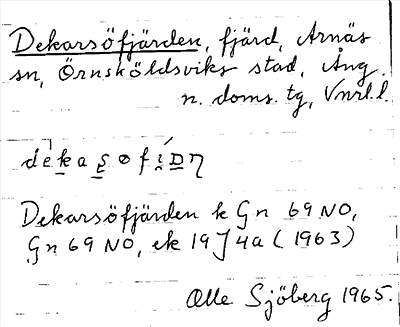 Dekarsöfjärden, fjärd, Arnäs
sn, Örnsköldsviks stad, Ång.
n. doms. tg, Vnrl.l.
Dekarsöfjärden k Gn 69 NO,
Gn 69 NO, ek 19J4a (1963)
Olle Sjöberg 1965.